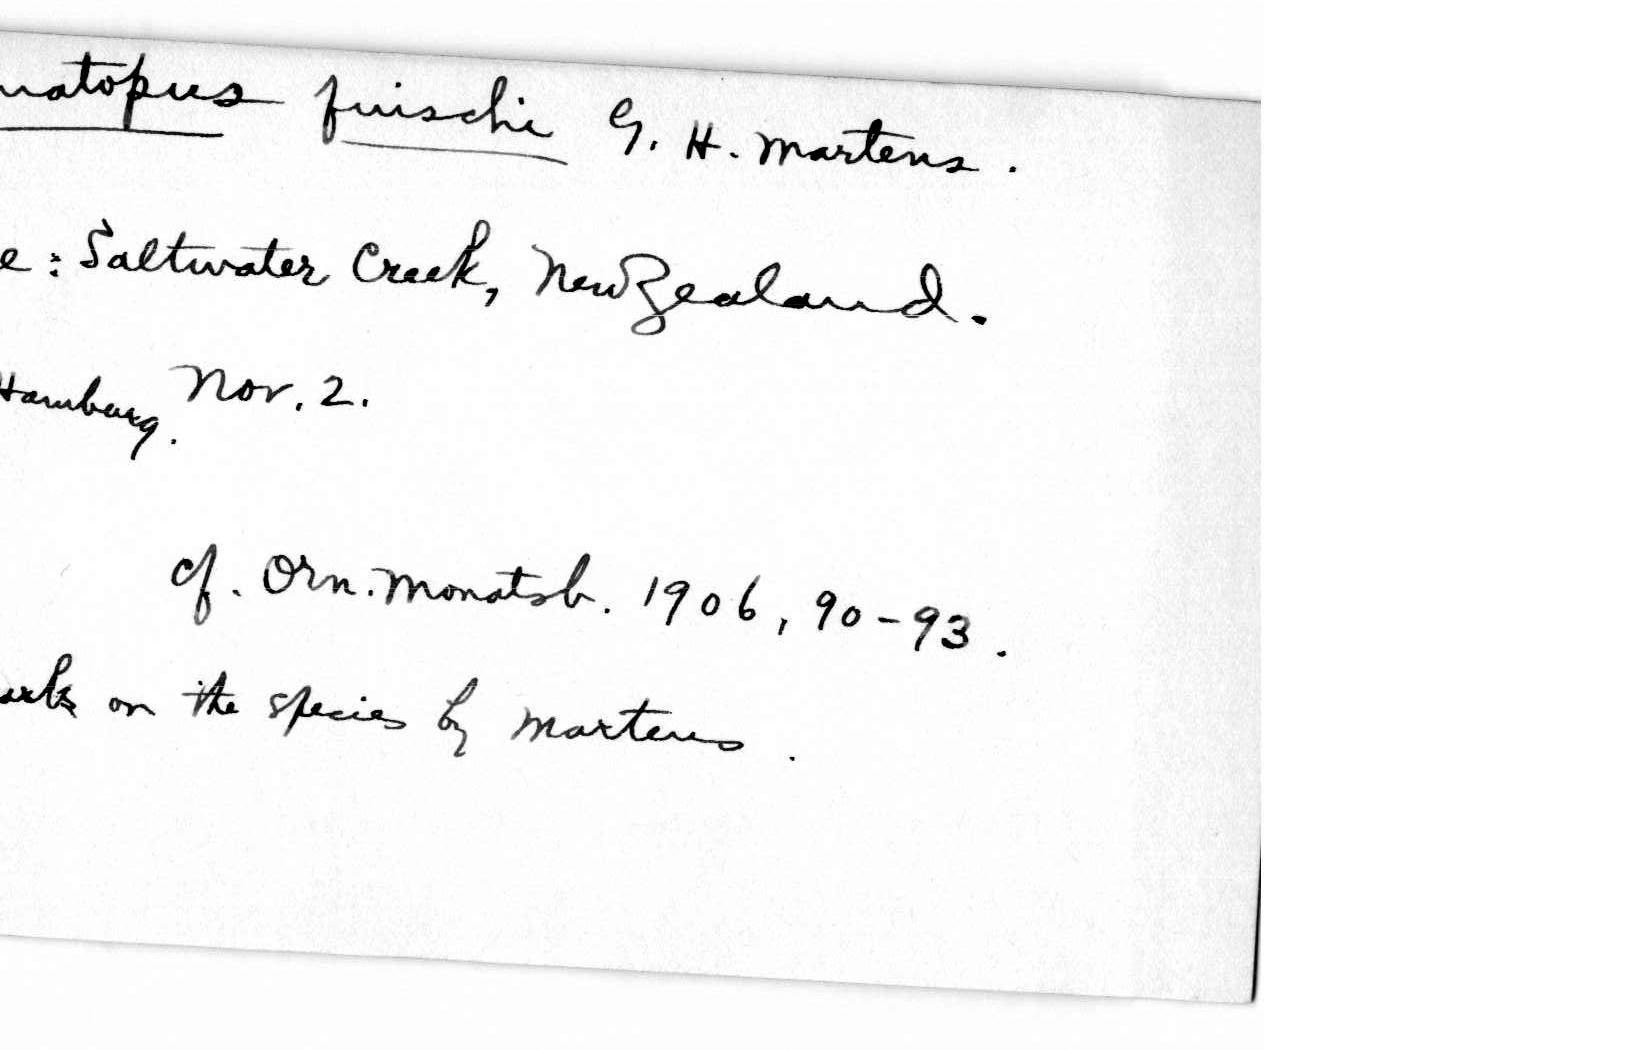 matopus finschi G. H. Martens.
e: Saltwater Creek, New Zealand.
Hamburg. Nov. 2.
cf. Orn. Monatsb. 1906, 90-93.
arks on the species by Martens.